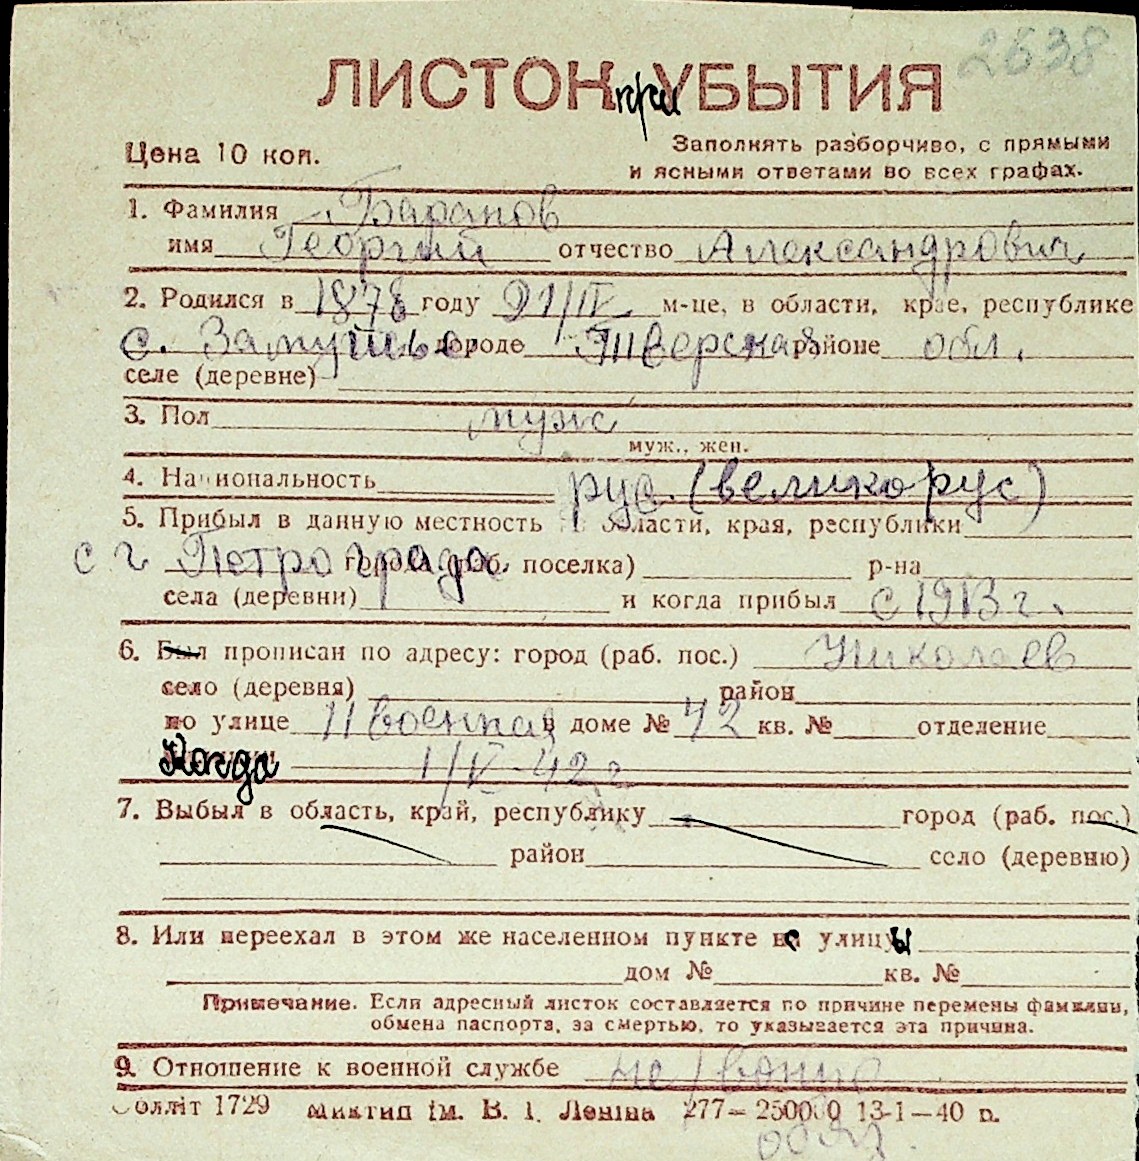 2638
ЛИСТОК при УБЫТИЯ
Цена 10 коп.
Заполнять разборчиво, с прямыми
и ясными ответами во всех графах.
1. Фамилия Баранов
имя Георгий отчество Александрович
2. Родился в 1878 году 21/IV м-це, в области, крае, республике
с. городе Тверская районе обл.
селе (деревне)
3. Пол муж
муж., жен.
4. Национальность рус. (великорус)
5. Прибыл в данную местность из области, края, республики
с г. Петрограда города (раб. поселка) р-на
села (деревни) и когда прибыл с 1913 г.
6. Был прописан по адресу: город (раб. пос.) Николаев
село (деревня) район
по улице 11 военная в доме № 42 кв. № отделение
Когда 1/V-42 г
7. Выбыл в область, край, республику город (раб. пос.)
район село (деревню)
8. Или переехал в этом же населенном пункте с улицы
дом № кв. №
Примечание. Если адресный листок составляется по причине перемены фамилии,
обмена паспорта, за смертью, то указывается эта причина.
9. Отношение к военной службе не
Обліт 1729 Миктип ім. В. І. Леніна 277—250000 13-1—40 р.